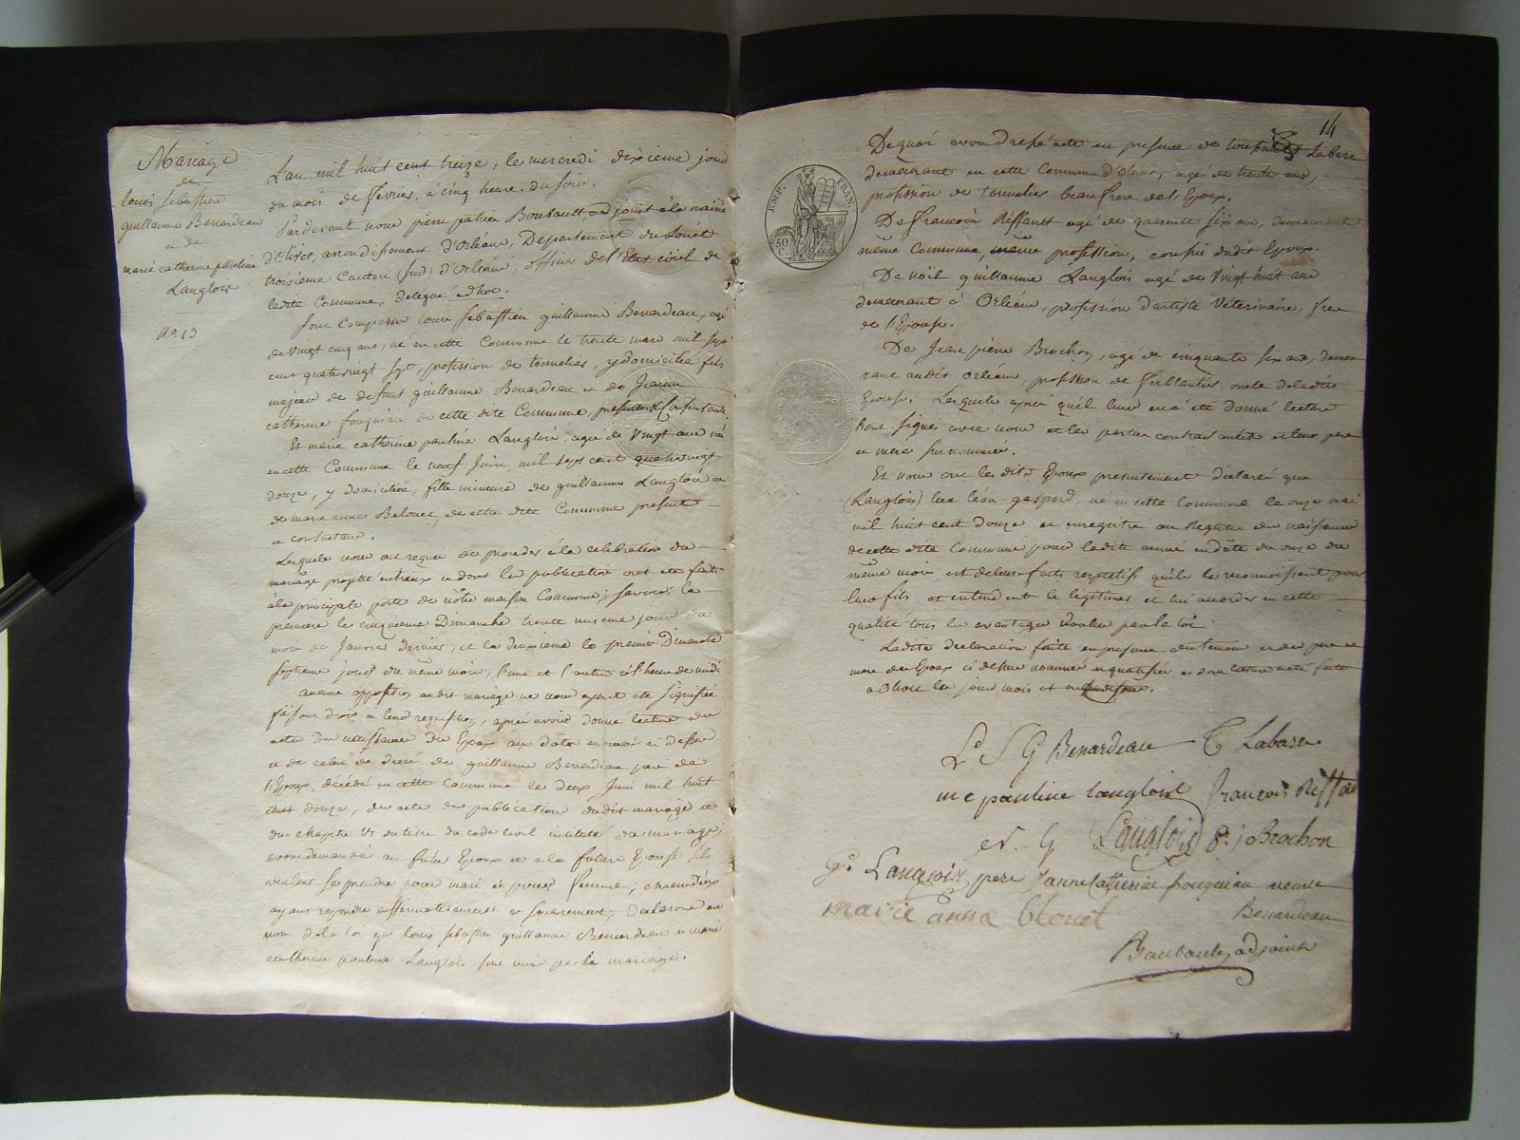 Mariage
de
louis sébastien
guillaume Benardeau
et de
marie catherine pauline
Langlois
No. 13
L'an mil huit cent treize, le mercredi dixieme jour
du mois de fevrier, à cinq heure du soir.
Pardevant nous pierre patrice Boubault, adjoint à la mairie
d'Olivet, arrondissement d'Orléans, Departement du Loiret
troisieme Canton (sud) d'Orléans, officier de l'Etat civil de
ladite Commune, delegué adhoc.
Sont Comparus louis sébastien guillaume Benardeau, agé
de vingt cinq ans, né en cette Commune le trente mars mil sept
cent quatrevingt sept, profession de tonnelier, y domicilié fils
majeur de defunt guillaume Benardeau et de Jeanne
catherine fouqueau de cette dite Commune, presente & Consentante.
Et marie catherine pauline Langlois, agée de vingt ans née
en cette Commune le neuf Juin mil sept cent quatrevingt
douze, y domiciliée, fille mineure de guillaume Langlois et
de marie anne Belouet, de cette dite Commune present
et consentans.
Lesquels nous ont requis de proceder à la celebration du
mariage projetté entr'eux et dont les publications ont été faites
à la principale porte de nôtre maison Commune; savoir; la
premiere le cinquieme Dimanche trente unieme jour du
mois de Janvier dernier, et la deuxieme le premier Dimanche
septieme jour du même mois, l'une et l'autre à l'heure de midi
aucune opposition audit mariage ne nous ayant été signifiée
faisant droit à leur requisition, après avoir donné lecture des
actes de naissance des Epoux aux dates enoncés ci dessus
et de celui de decès de guillaume Benardeau pere de
l'Epoux, décédé en cette Commune le deux Juin mil huit
cent douze, des actes de publication dudit mariage et
du chapitre VI du titre du code civil intitulé du mariage,
avons demandé au futur Epoux et à la future Epouse s'ils
veulent se prendre pour mari et pour femme, chacun d'eux
ayant repondu affirmativement et separement, declarons au
nom de la loi que louis sébastien guillaume Benardeau et marie
catherine pauline Langlois sont unis par le mariage.
14
EMP. FRAN.
50
De quoi avons dressé acte en presence de Labare
demeurant en cette Commune d'Olivet, agé de trente ans,
profession de tonnelier beau frere de l'Epoux.
De françois Reffault agé de quarante six ans, demeurant
même Commune, même profession, cousin dudit Epoux.
De noël guillaume Langlois agé de vingt huit ans
demeurant à Orléans, profession d'artiste Veterinaire, frere
de l'Epouse.
De Jean pierre Brochon, agé de cinquante six ans, demeu
rant audit Orléans, profession de ferblantier, oncle de ladite
Epouse. Lesquels après qu'il leur en a été donné lecture
l'ont signé avec nous et les parties contractantes et leurs pere
et mere susnommés.
Et nous ont les dits Epoux presentement declaré que
(Langlois) luc léon gaspard, né en cette Commune le onze mai
mil huit cent douze et enregistré au Registre des naissances
de cette dite Commune pour ladite année en date du onze du
même mois est de leurs faits respectifs qu'ils le reconnoissent pour
leur fils et entendent le legitimer et lui accorder en cette
qualité tous les avantages voulus par la loi.
Ladite declaration faite en presence des temoins et des pere et
mere des Epoux ci dessus nommés et qualifiés et dont lecture a été faite
à Olivet les jour mois et an susdits.
Ls S G Benardeau C Labare
m c pauline langlois françois Reffau
N. G Langlois P. j Brochon
ge Langlois pere Janne Catherine fouqueau veuve
Benardeau
marie anne blouet
Boubault, adjoint